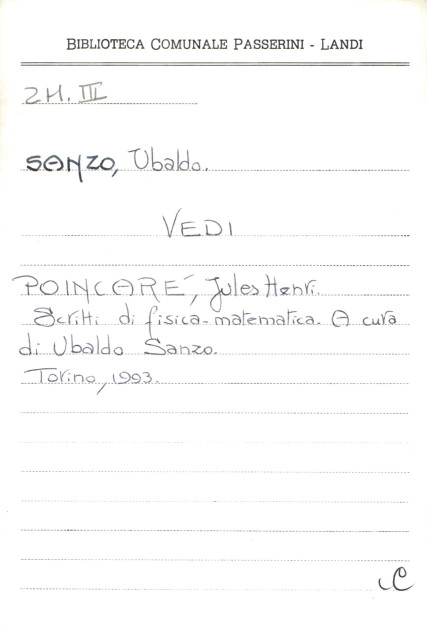 BIBLIOTECA COMUNALE PASSERINI - LANDI
2H. III
SANZO, Ubaldo.
VEDI
POINCARÉ, Jules Henri.
Scritti di fisica-matematica. A cura
di Ubaldo Sanzo.
Torino, 1993.